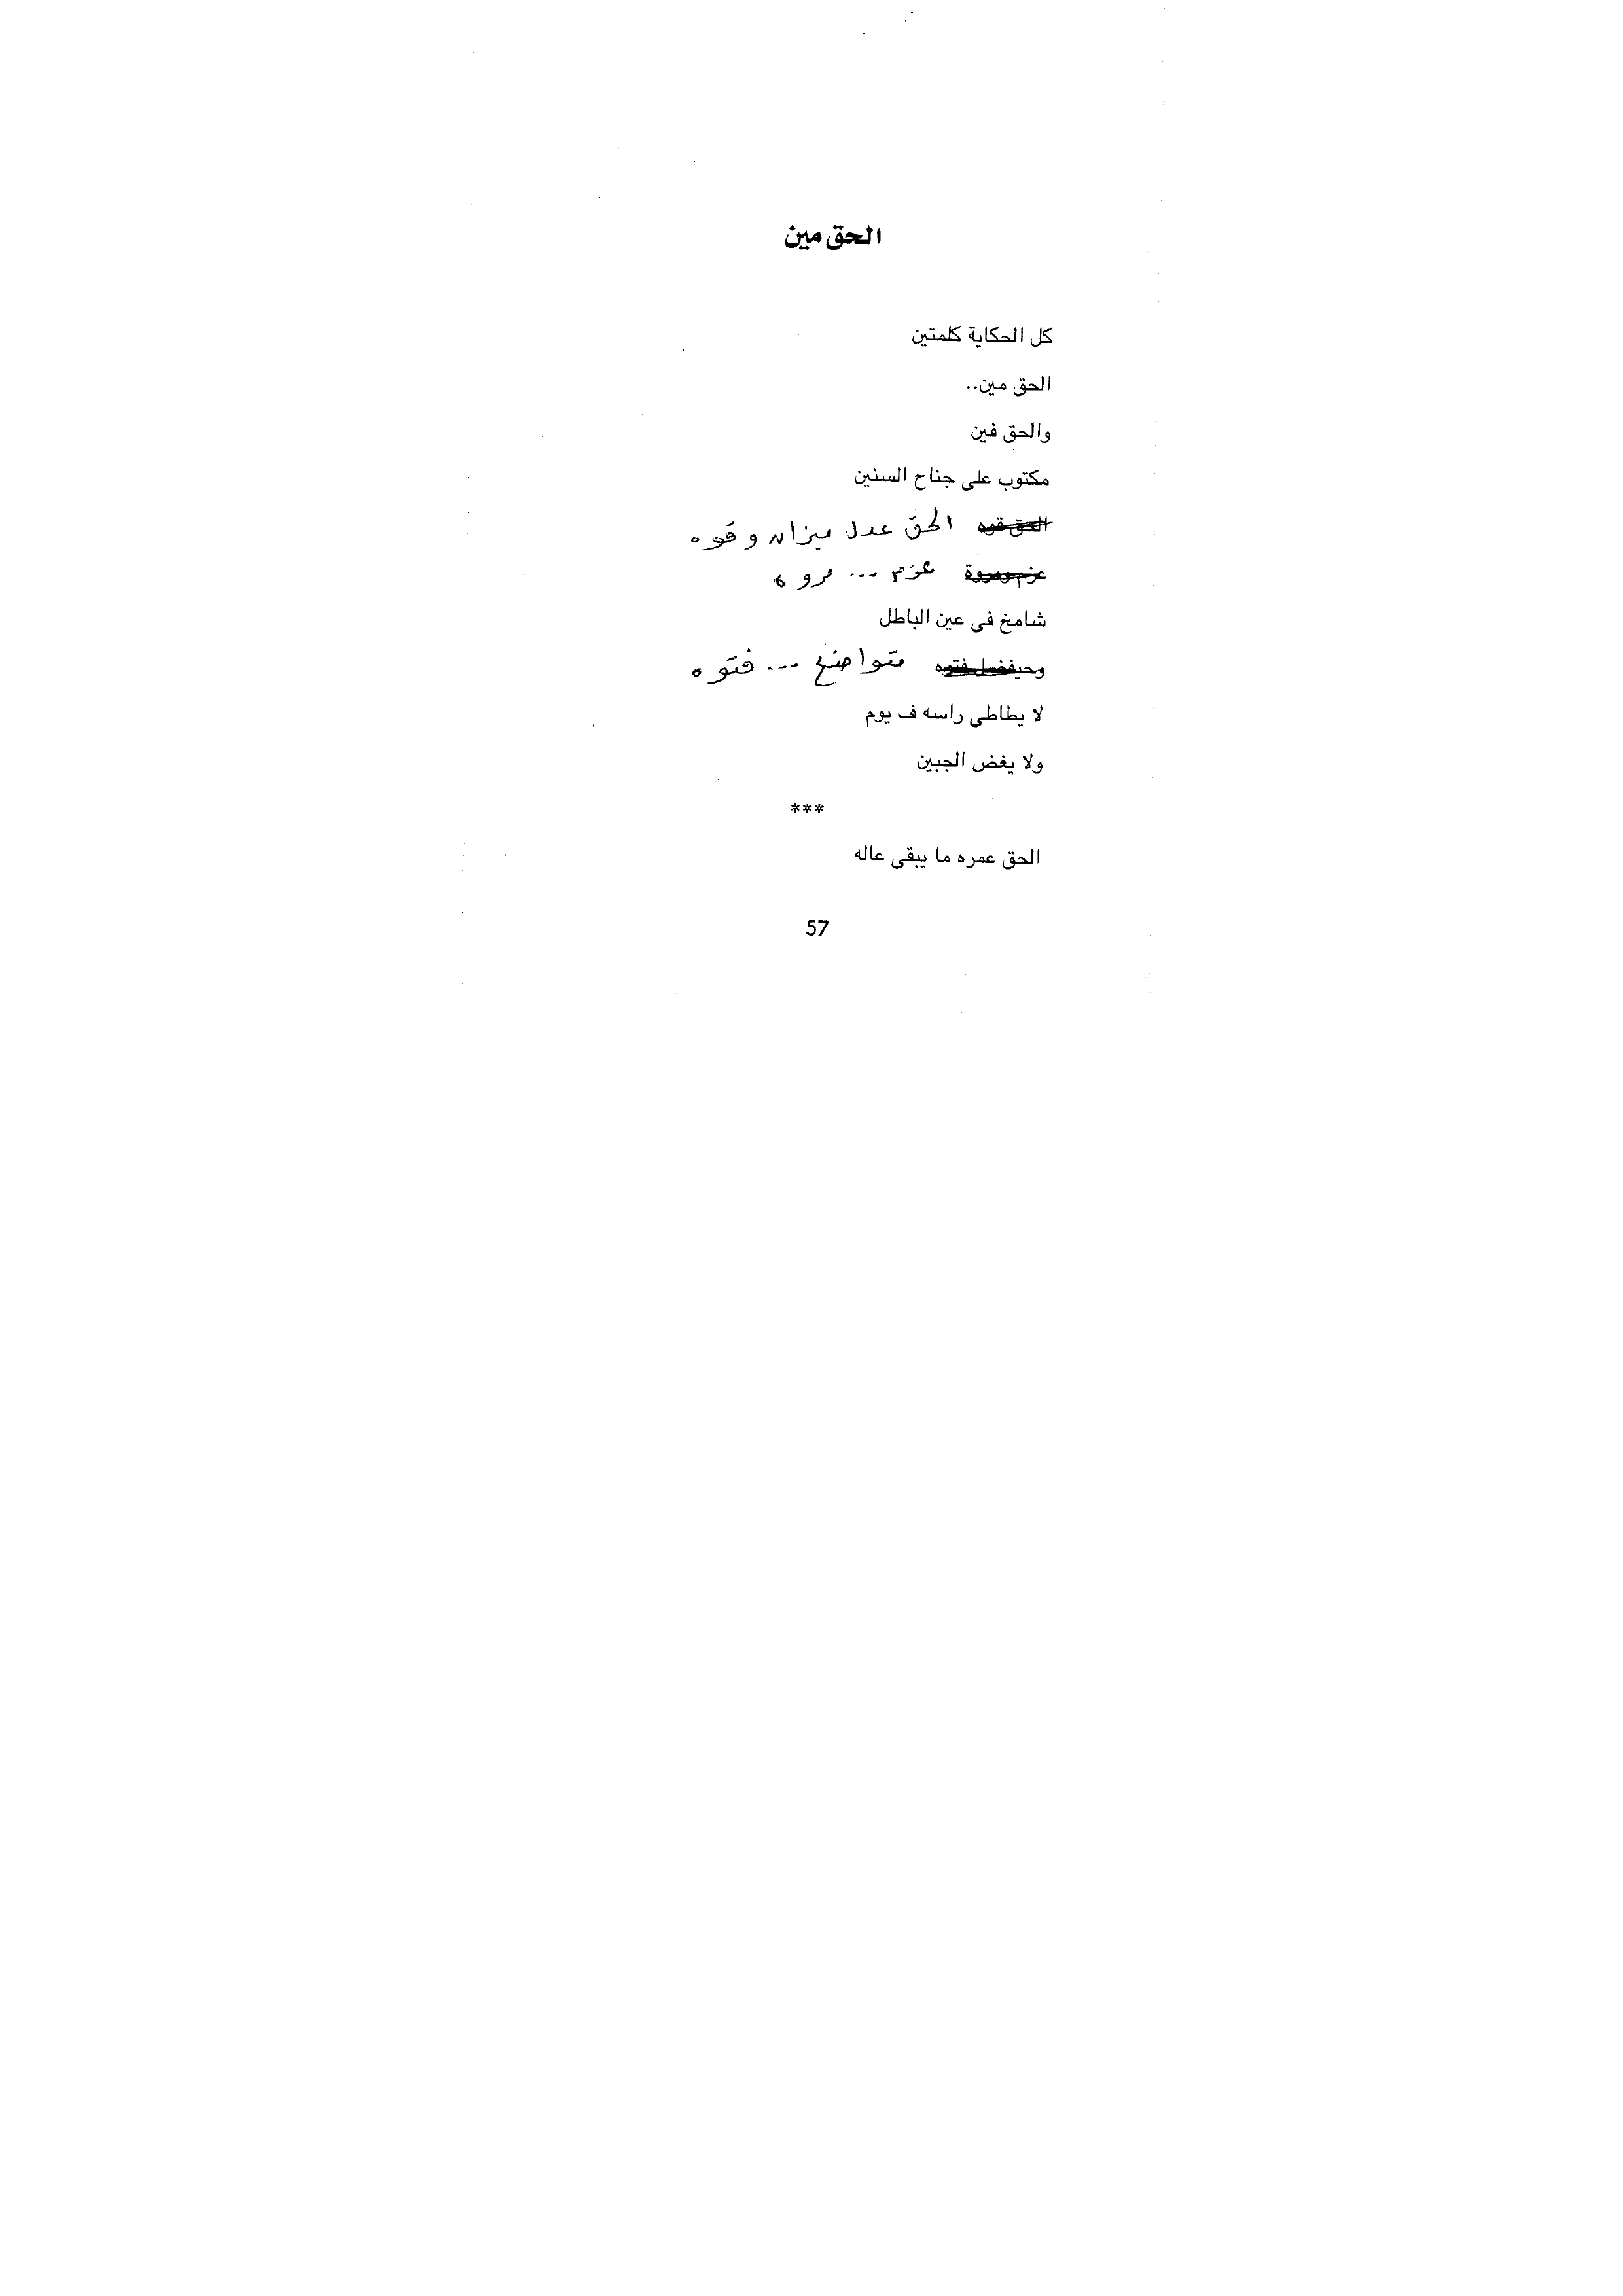 الحق مين
كل الحكاية كلمتين
الحق مين..
والحق فين
مكتوب على جناح السنين
الحق قوه الحقّ عدل ميزان وقوه
عزم ومروة عزم ... مروه
شامخ فى عين الباطل
وحيفضل فتوه متواضع ... فتوه
لا يطاطى راسه ف يوم
ولا يغض الجبين
***
الحق عمره ما يبقى عاله
57